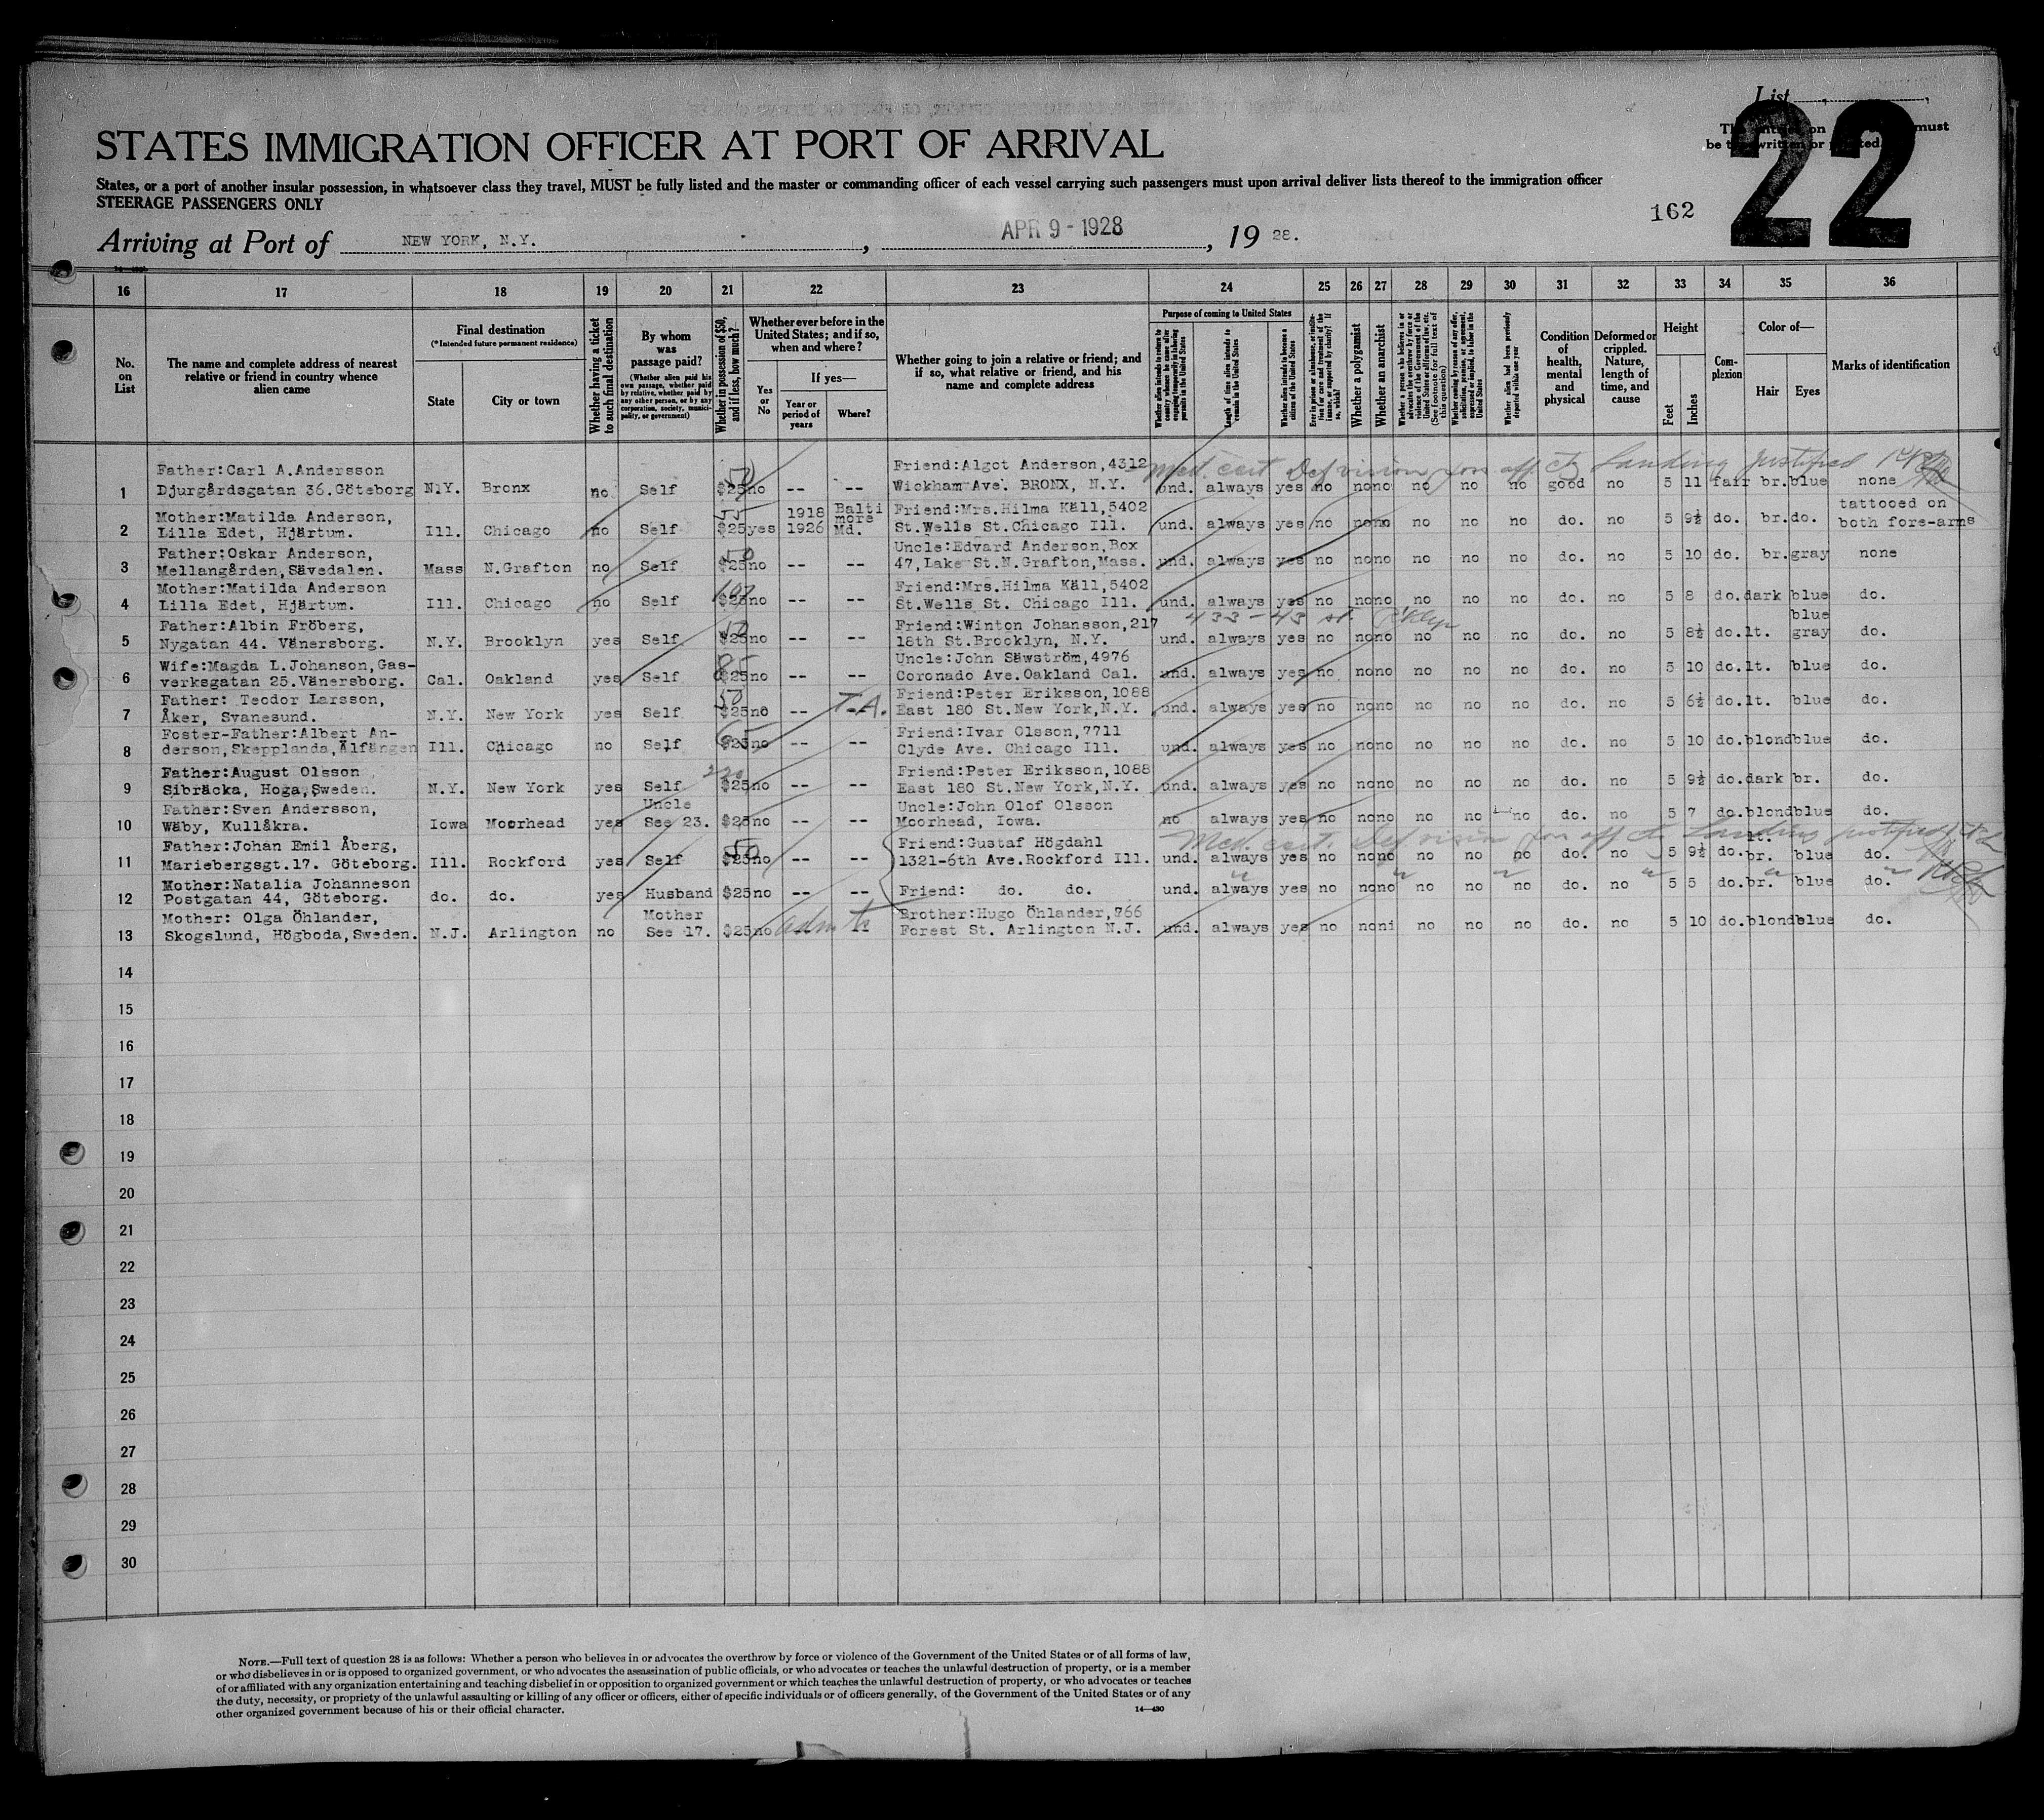 List
22
must
STATES IMMIGRATION OFFICER AT PORT OF ARRIVAL
States, or a port of another insular possession, in whatsoever class they travel, MUST be fully listed and the master or commanding officer of each vessel carrying such passengers must upon arrival deliver lists thereof to the immigration officer
STEERAGE PASSENGERS ONLY
162
Arriving at Port of NEW YORK, N.Y. , APR 9 - 1928 , 19 28.
16 17 18 19 20 21 22 23 24 25 26 27 28 29 30 31 32 33 34 35 36
No. on List
The name and complete address of nearest relative or friend in country whence alien came
Final destination
(*Intended future permanent residence)
State City or town
Whether having a ticket to such final destination
By whom was passage paid?
(Whether alien paid his own passage, whether paid by relative, whether paid by any other person, or by any corporation, society, municipality, or government)
Whether in possession of $50, and if less, how much?
Whether ever before in the United States; and if so, when and where?
Yes or No
If yes—
Year or period of years
Where?
Whether going to join a relative or friend; and if so, what relative or friend, and his name and complete address
Purpose of coming to United States
Length of time alien intends to remain in the United States
Whether alien intends to become a citizen of the United States
Whether a polygamist
Whether an anarchist
Condition of health, mental and physical
Deformed or crippled. Nature, length of time, and cause
Height
Feet Inches
Complexion
Color of—
Hair Eyes
Marks of identification
Med. cert Def vision Landing justified
Father:Carl A.Andersson Friend:Algot Anderson,4312
1 Djurgårdsgatan 36.Göteborg N.Y. Bronx no Self 50 $25 no -- -- Wickham Ave. BRONX, N.Y. und. always yes no no no no no no good no 5 11 fair br. blue none
Mother:Matilda Anderson, 55 1918 Baltimore Friend:Mrs.Hilma Käll,5402 tattooed on
2 Lilla Edet, Hjärtum. Ill. Chicago no Self $25 yes 1926 Md. St.Wells St.Chicago Ill. und. always yes no no no no no no do. no 5 9½ do. br. do. both fore-arms
Father:Oskar Anderson, 50 Uncle:Edvard Anderson,Box
3 Mellangården,Sävedalen. Mass N.Grafton no Self $25 no -- -- 47,Lake St.N.Grafton,Mass. und. always yes no no no no no no do. no 5 10 do. br. gray none
Mother:Matilda Anderson Friend:Mrs.Hilma Käll,5402
4 Lilla Edet, Hjärtum. Ill. Chicago no Self $25 no -- -- St.Wells St. Chicago Ill. und. always yes no no no no no no do. no 5 8 do. dark blue do.
433-43 st. B'klyn
Father:Albin Fröberg, Friend:Winton Johansson,217 blue
5 Nygatan 44. Vänersborg. N.Y. Brooklyn yes Self $25 no -- -- 18th St.Brooklyn, N.Y. und. always yes no no no no no no do. no 5 8½ do. lt. gray do.
Wife:Magda L.Johanson,Gas- 85 Uncle:John Säwström,4976
6 verksgatan 25.Vänersborg. Cal. Oakland yes Self $25 no -- -- Coronado Ave.Oakland Cal. und. always yes no no no no no no do. no 5 10 do. lt. blue do.
Father: Teodor Larsson, 50 T.A. Friend:Peter Eriksson,1088
7 Åker, Svanesund. N.Y. New York yes Self $25 no -- East 180 St.New York,N.Y. und. always yes no no no no no no do. no 5 6½ do. lt. blue do.
Foster-Father:Albert An- 65 Friend:Ivar Olsson,7711
8 derson,Skepplanda,Älfängen Ill. Chicago no Self $25 no -- -- Clyde Ave. Chicago Ill. und. always yes no no no no no no do. no 5 10 do. blond blue do.
Father:August Olsson Friend:Peter Eriksson,1088
9 Sibräcka, Hoga,Sweden. N.Y. New York yes Self $25 no -- -- East 180 St.New York,N.Y. und. always yes no no no no no no do. no 5 9½ do. dark br. do.
Father:Sven Andersson, Uncle Uncle:John Olof Olsson
10 Wäby, Kullåkra. Iowa Moorhead yes See 23. $25 no -- -- Moorhead, Iowa. no always yes no no no no no no do. no 5 7 do. blond blue do.
Med. cert. Def vision Landing justified
Father:Johan Emil Åberg, 50 Friend:Gustaf Högdahl lt.
11 Mariebergsgt.17. Göteborg. Ill. Rockford yes Self $25 no -- -- 1321-6th Ave.Rockford Ill. und. always yes no no no no no no do. no 5 9½ do. br. blue do.
Mother:Natalia Johanneson
12 Postgatan 44, Göteborg. do. do. yes Husband $25 no -- -- Friend: do. do. und. always yes no no no no no no do. no 5 5 do. br. blue do.
Mother: Olga Öhlander, Mother Brother:Hugo Öhlander,766
13 Skogslund, Högboda,Sweden. N.J. Arlington no See 17. $25 no -- -- Forest St. Arlington N.J. und. always yes no no ni no no no do. no 5 10 do. blond blue do.
14
15
16
17
18
19
20
21
22
23
24
25
26
27
28
29
30
NOTE.—Full text of question 28 is as follows: Whether a person who believes in or advocates the overthrow by force or violence of the Government of the United States or of all forms of law,
or who disbelieves in or is opposed to organized government, or who advocates the assassination of public officials, or who advocates or teaches the unlawful destruction of property, or is a member
of or affiliated with any organization entertaining and teaching disbelief in or opposition to organized government or which teaches the unlawful destruction of property, or who advocates or teaches
the duty, necessity, or propriety of the unlawful assaulting or killing of any officer or officers, either of specific individuals or of officers generally, of the Government of the United States or of any
other organized government because of his or their official character.
14—430